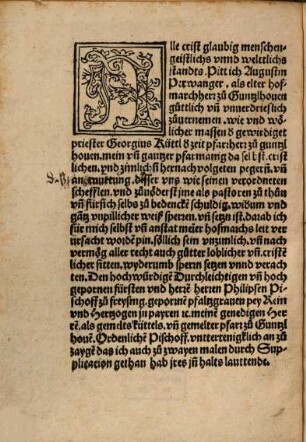 Alle crist glaubig menschen
geistlichs vnnd weltlichs
standts. Pitt ich Augustin
Perwanger, als elter hof-
marchherr zů Guntzlhouen
gůttlich vñ vnuerdrießlich
zůuernemen, wie vnd wô-
licher massen d gewirdiget
priester Georgius Küttl d zeit pfarrherr zů guntzl
houen. mein vñ gantzer pfarmaing da selbst. crist
lichen. vnd zimlichñ hernachvolgeten pegerñ. vñ
an rueffung. diser vns wie seinen verordneten
schefflen. vnd zůuorderst jme als pastoren zů thůn
vñ fürsich selbs zů bedenckē schuldig. widum vnd
gātz vnpillicher weiß spertē. vñ setzn ist. darab ich
für mich selbst vñ anstat meiner hofmarchs leit ver
ursacht wordē pin. söllich sein vnzimlich. vñ nach
vermög aller recht auch gůtter loblicher vñ cristē
licher sitten. wydrumb spertn setzen vnnd verach
ten. Den hochwürdigē Durchleichtigen vñ hoch
gepornen fürsten vnd herrē herren Philipsen Pi-
schoff zů freysing. geporne pfaltzgrauen pey Rein
vnd Hertzogen jn payren ꝛc. meinē genedigen Her
rē. als gemelts küttels. vñ gemelter pfarr zů Guntzl
houē. Ordenlichē Pischoff. vnttertenigklich an zů
zaygē das ich auch zů zwayen malen durch Sup
plication gethan hab jres jñ halts lauttende.